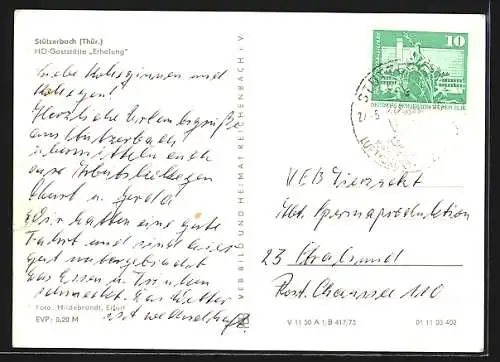 Stützerbach (Thür.)
HO-Gaststätte „Erholung"
Liebe Kolleginnen und
Kollegen!
Herzliche Urlaubsgrüße
aus Stützerbach
übermitteln euch
eure Arbeitskollegen
Kurt u. Gerda
Wir hatten eine gute
Fahrt und sind hier
gut untergebracht
das Essen u. Trinken
schmeckt. Das Wetter
ist wechselhaft.
Foto: Hildebrandt, Erfurt
EVP: 0,20 M
VEB BILD UND HEIMAT REICHENBACH i. V.
10
VEB Tierzucht
Abt. Spermaproduktion
23 Stralsund
Rost. Chaussee 110
V 11 50 A 1/B 417/75
01 11 03 402